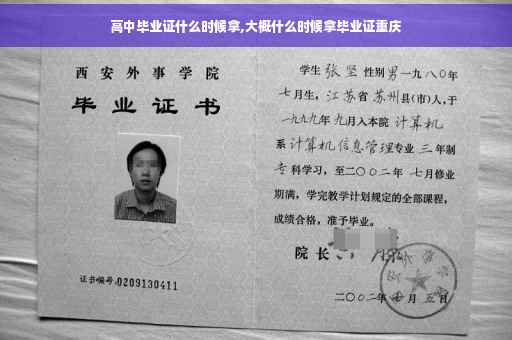 高中毕业证什么时候拿,大概什么时候拿毕业证重庆
西安外事学院
毕业证书
证书编号:0209130411
学生 张坚 性别 男 一九八〇年
七月生, 江苏省 苏州县(市)人,于
一九九九年 九月入本院 计算机
系 计算机信息管理专业 三 年制
专科学习, 至二〇〇二年 七月修业
期满, 学完教学计划规定的全部课程,
成绩合格, 准予毕业。
院长
二〇〇二年 月 五日